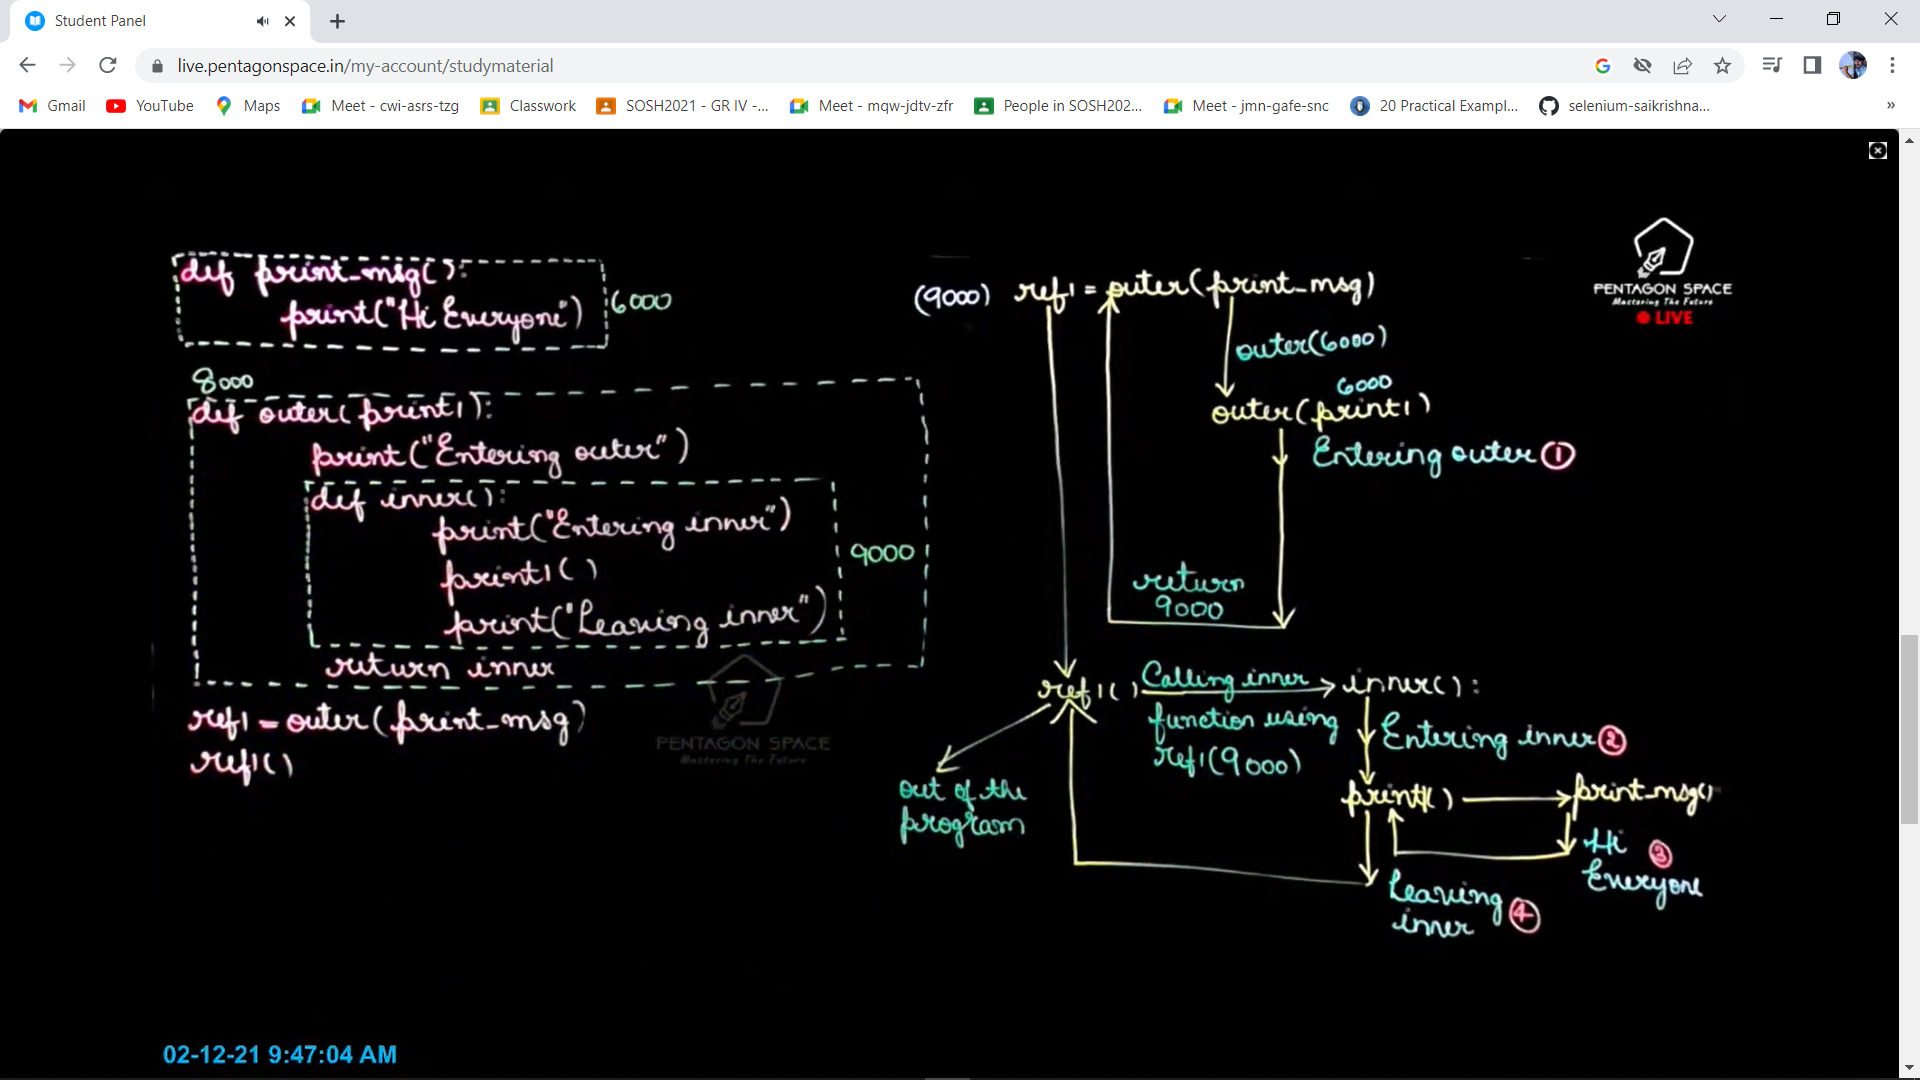 Student Panel
live.pentagonspace.in/my-account/studymaterial
Gmail
YouTube
Maps
Meet - cwi-asrs-tzg
Classwork
SOSH2021 - GR IV -...
Meet - mqw-jdtv-zfr
People in SOSH202...
Meet - jmn-gafe-snc
20 Practical Exampl...
selenium-saikrishna...
»
PENTAGON SPACE
Mastering The Future
LIVE
def print_msg():
print("Hi Everyone")
6000
8000
def outer(print1):
print("Entering outer")
def inner():
print("Entering inner")
print1()
print("Leaving inner")
9000
return inner
ref1 = outer(print_msg)
ref1()
PENTAGON SPACE
Mastering The Future
(9000) ref1 = outer(print_msg)
outer(6000)
6000
outer(print1)
Entering outer 1
return
9000
ref1() Calling inner inner():
function using
ref1(9000)
Entering inner 2
print1() print_msg()
Hi 3
Everyone
Leaving 4
inner
out of the
program
02-12-21 9:47:04 AM